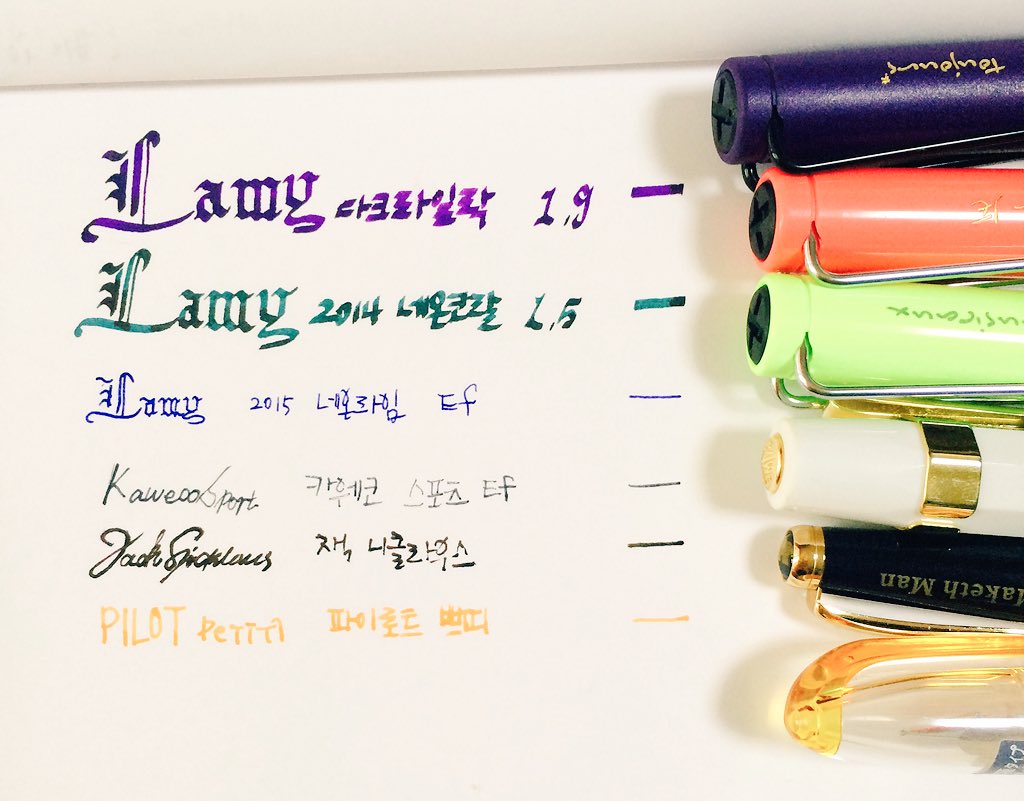 Lamy 다크라일락 1.9
Lamy 2014 네온코랄 1.5
Lamy 2015 네온라임 Ef
Kaweco Sport 카웨코 스포츠 EF
Jack Nicklaus 잭 니클라우스
PILOT PETIT1 파이로트 쁘띠
toujours*
Maketh Man